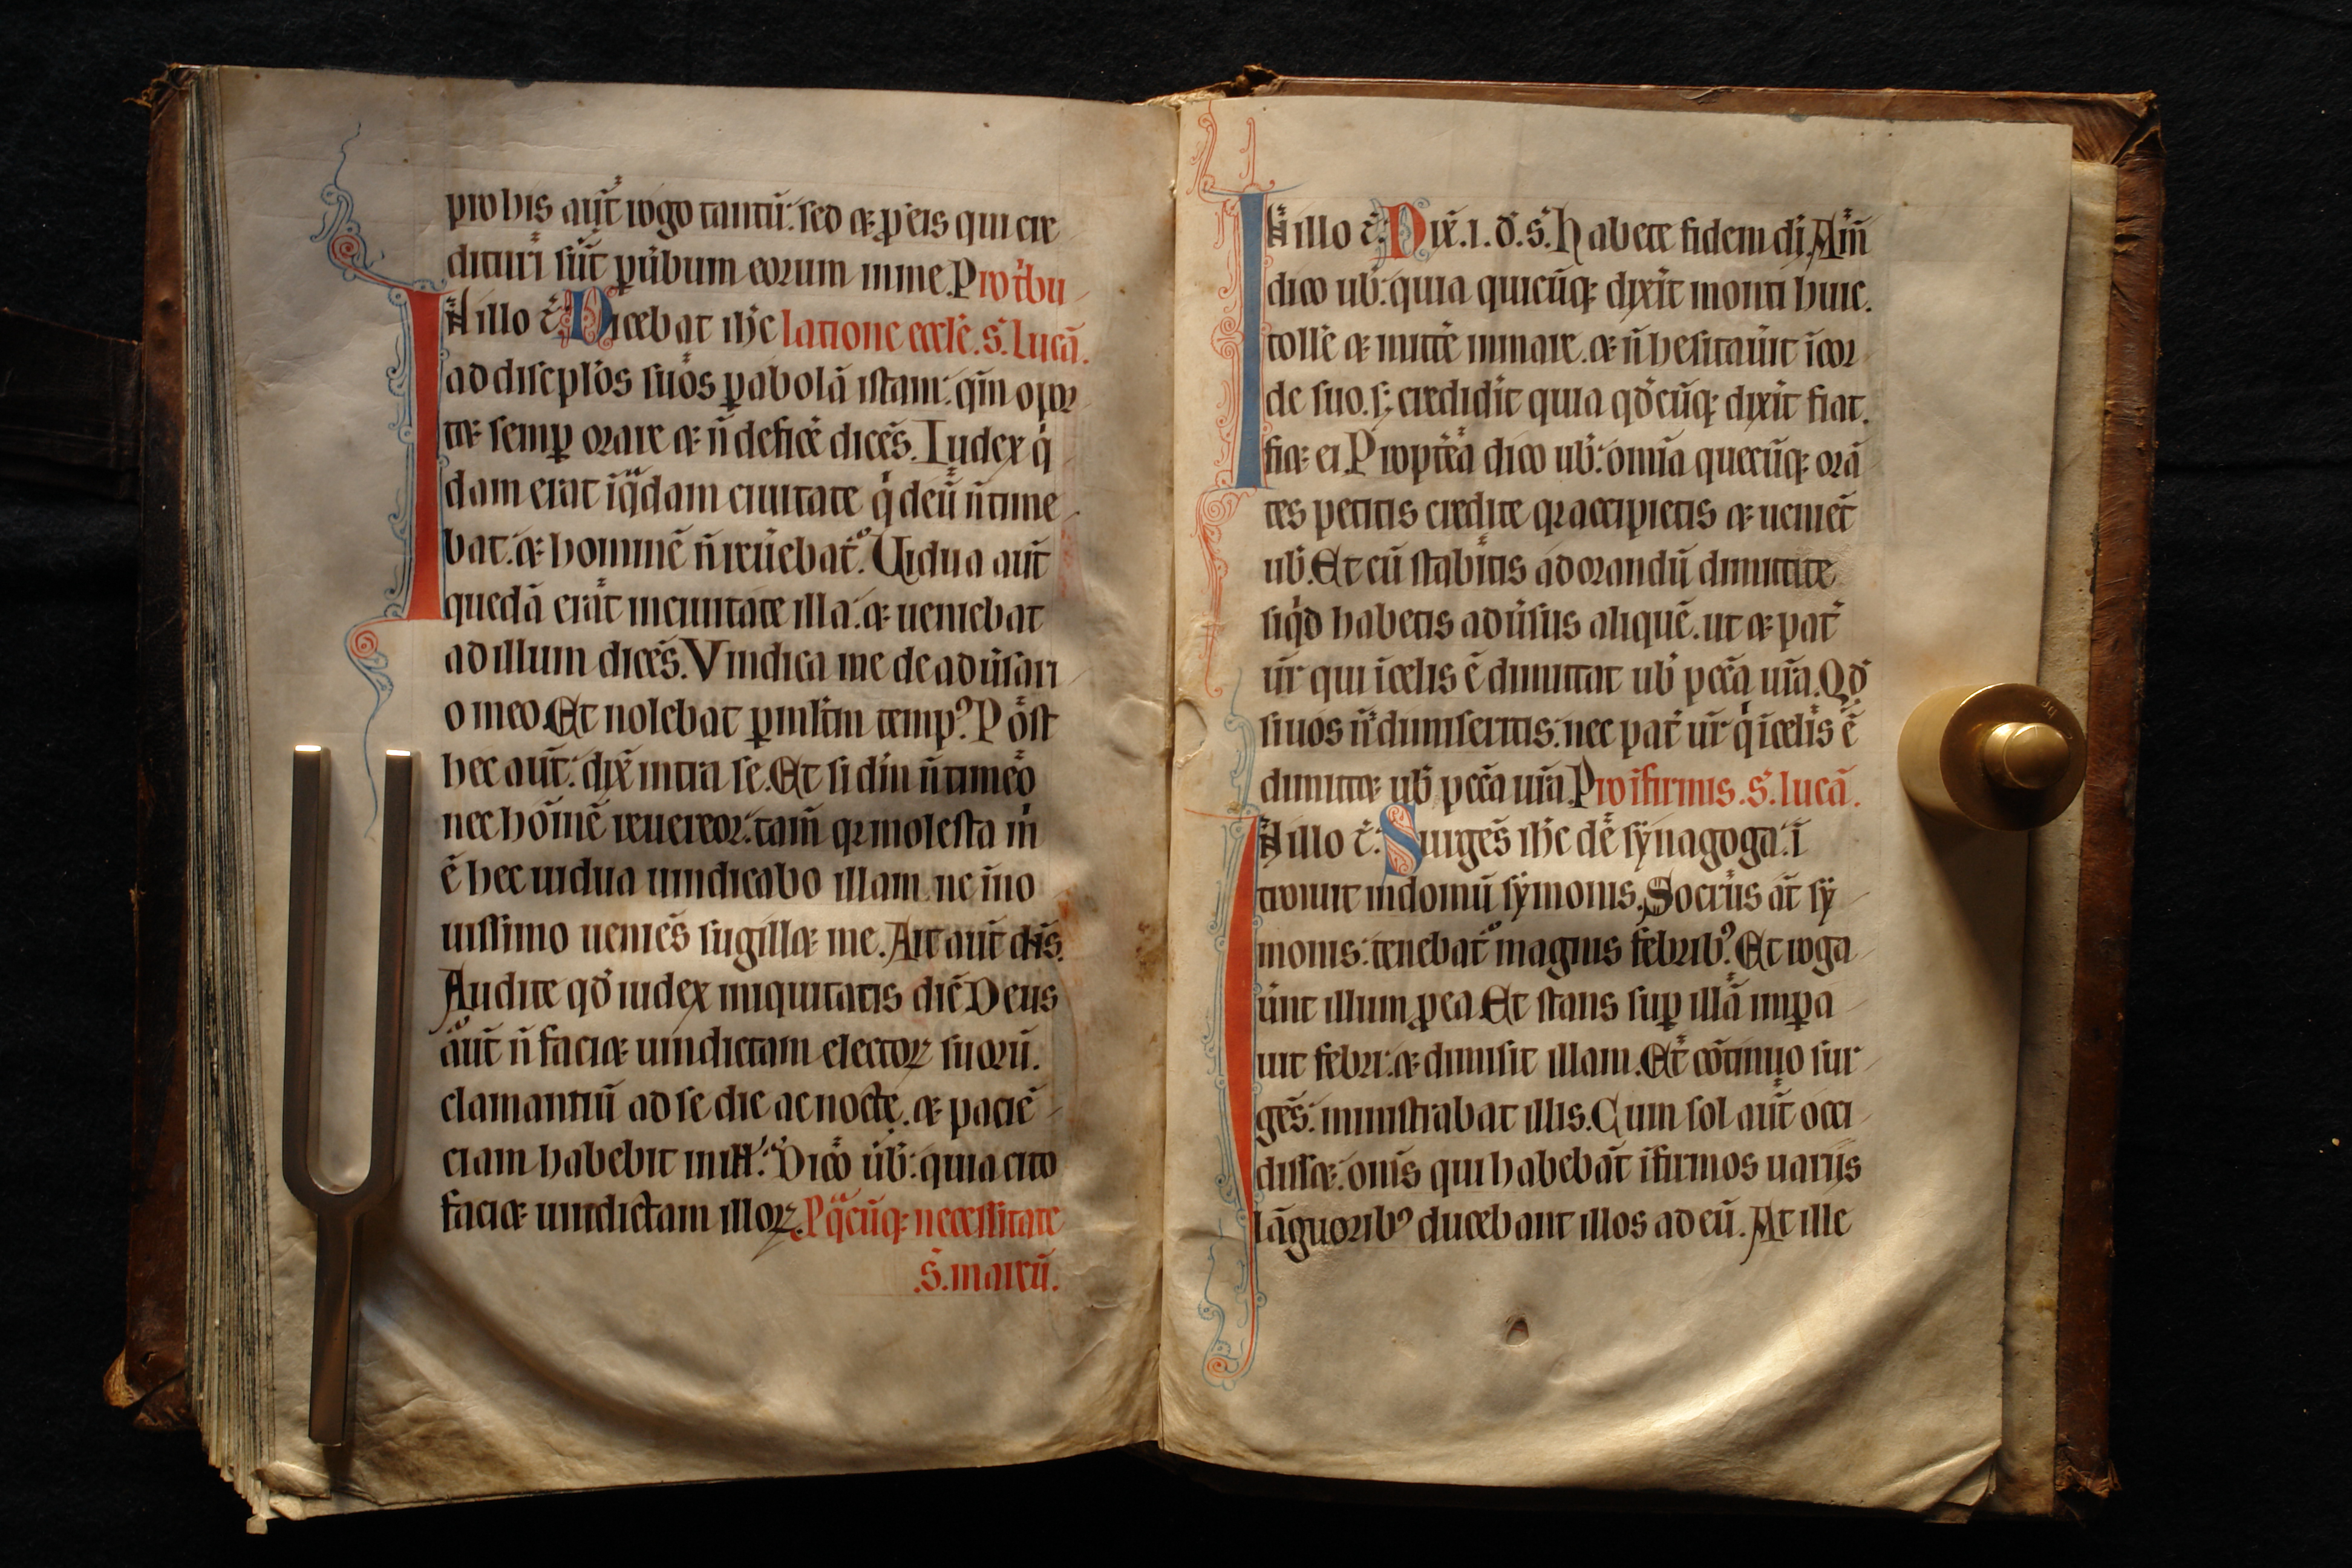 pro bis aut̄ rogo tantū: sed & ꝑ eis qui cre
dituri sūt ꝑ ūbum eorum in me. Pro tbu
In illo t̄. Dicebat ihc̄ latione eccl̄e. s̄. lucā.
ad discipl̄os suos ꝑabolā istam: qm̄ opor
t& semꝑ orare & n̄ deficē dicēs. Iudex q
dam erat ī qdam ciuitate q deū n̄ time
bat. & hominē n̄ reūebat. Uidua aut̄
quedā erat in ciuitate illa: & ueniebat
ad illum dicēs. Vindica me de adūsari
o meo. Et nolebat ꝑ mltm tempꝰ. Post
hec aut̄: dix̄ intra se. Et si dm̄ n̄ timeo
nec hoīnē reuereor: tam̄ qr molesta m̄
ē hec uidua uindicabo illam. ne ī no
uissimo ueniēs sugill& me. Ait aut̄ dn̄s.
Audite qd̄ iudex iniquitatis dic̄. Deus
aut̄ n̄ faci& uindictam electoꝝ suorū.
clamantiū ad se die ac nocte. & paciē
ciam habebit in ill̄: Dico ūb: quia cito
faci& uindictam illoꝝ. P qcūq; necessitate
.s̄. marcū.
In illo t̄. Dix̄. i. d̄. s̄. Habete fidem di. Am̄
dico ub̄: quia quicūq; dixit monti huic.
tolle & mitte in mare. & n̄ hesitaūit ī cor
de suo. s; crediderit quia qd̄cūq; dixit fiat.
fi& ei. Propterea dico ub̄: omīa quecūq; orā
tes petitis credite qr accipietis & ueniēt
ub̄. Et cū stabitis ad orandū dimittite
siqd habetis adūsus aliquē. ut & pat̄
ūr qui ī celis ē dimittat ub̄ pccā ur̄a. Qd̄
si uos n̄ dimiseritis: nec pat̄ ūr q ī celis ē
dimitt& ub̄ pccā ur̄a. Pro ifirmis. s̄. lucā.
In illo t̄. Surgēs ihc̄ de synagoga: ī
troiuit in domū symonis. Socrus at̄ sy
monis: tenebat̄ magnis febribꝰ. Et roga
ūnt illum ꝑ ea. Et stans suꝑ illā imꝑa
uit febri: & dimisit illam. Et cōtinuo sur
gēs: ministrabat illis. Cum sol aut̄ occi
diss&: om̄s qui habebāt īfirmos uariis
lāguoribꝰ ducebant illos ad eū. At ille